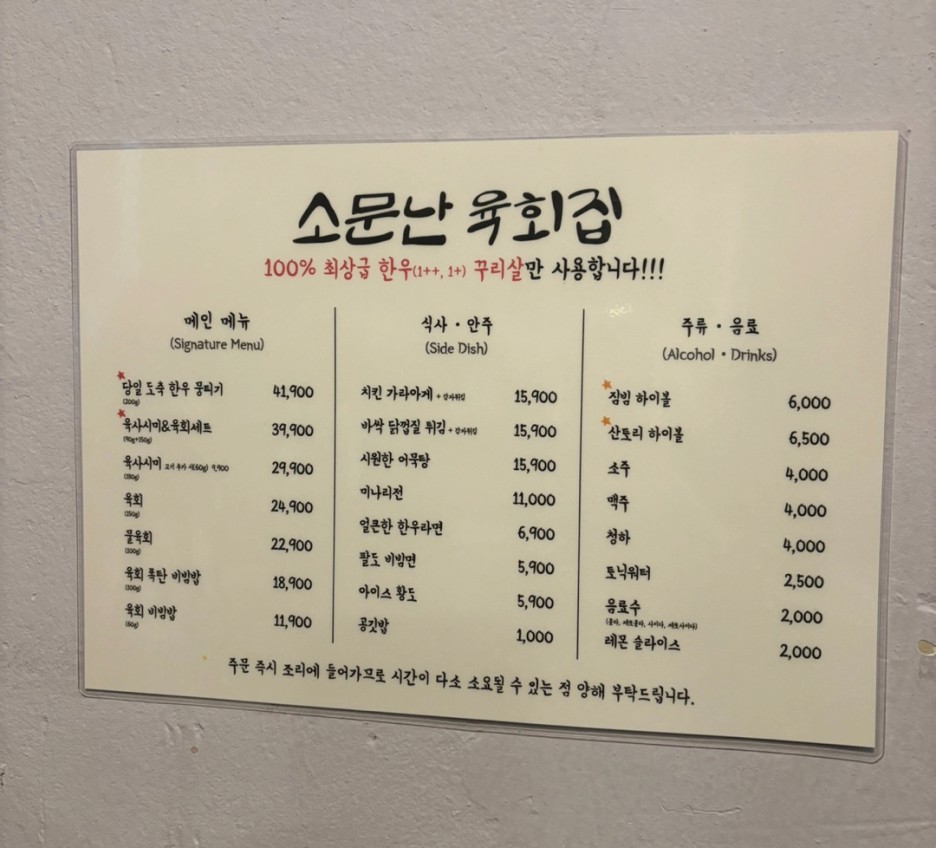 소문난 육회집
100% 최상급 한우(1++, 1+) 꾸리살만 사용합니다!!!
메인 메뉴
(Signature Menu)
당일 도축 한우 뭉티기 41,900
(200g)
육사시미&육회세트 39,900
(90g+150g)
육사시미 고기 추가 시(60g) 9,900 29,900
(180g)
육회 24,900
(250g)
물육회 22,900
(200g)
육회 폭탄 비빔밥 18,900
(200g)
육회 비빔밥 11,900
(60g)
식사 · 안주
(Side Dish)
치킨 가라아게 + 감자튀김 15,900
바싹 닭껍질 튀김 + 감자튀김 15,900
시원한 어묵탕 15,900
미나리전 11,000
얼큰한 한우라면 6,900
팔도 비빔면 5,900
아이스 황도 5,900
공깃밥 1,000
주류 · 음료
(Alcohol · Drinks)
짐빔 하이볼 6,000
산토리 하이볼 6,500
소주 4,000
맥주 4,000
청하 4,000
토닉워터 2,500
음료수 2,000
(콜라, 제로콜라, 사이다, 제로사이다)
레몬 슬라이스 2,000
주문 즉시 조리에 들어가므로 시간이 다소 소요될 수 있는 점 양해 부탁드립니다.